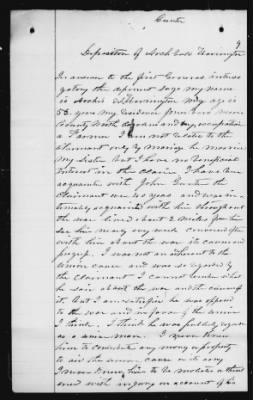 Deposition of Archibald
In answer to the first General interro
gatory the deponent says my name
is Archibald my age is
58 years my residence
County North Carolina and my occupation
a Farmer I am not related to the
claimant only by marriage he married
my Sister but I have no beneficial
interest in the claim I have been
acquainted with John the
Claimant over 40 years and was in
timately acquainted with him throughout
the war lived about 2 miles from him
saw him nearly every week conversed often
with him about the war its causes and
progress. I was not an adherent to the
union cause and was so regarded by
the claimant I cannot tell what
he said about the war and the causes of
it. but I am satisfied he was opposed
to the war and in favor of the union
I think. I think he was publicly regarded
as a union man. I never knew
him to contribute any money or property
to aid the union cause or its army
I never knew him to be molested or threat
ened with injury on account of his